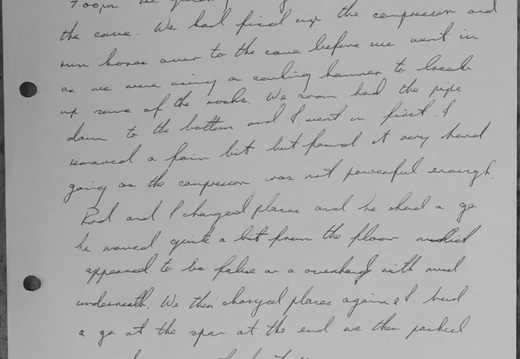 the cave. We had fired up the compressor and
run hoses over to the cave before we went in
as we were using a caulking hammer to break
up some of the rocks. We soon had the pipe
down to the bottom and I went in first. I
removed a fair bit but found it very hard
going as the compressor was not powerful enough.
Rod and I changed places and he had a go
he moved quite a bit from the floor which
appeared to be false or a overhang with mud
underneath. We then changed places again & I had
a go at the spar at the end we then packed